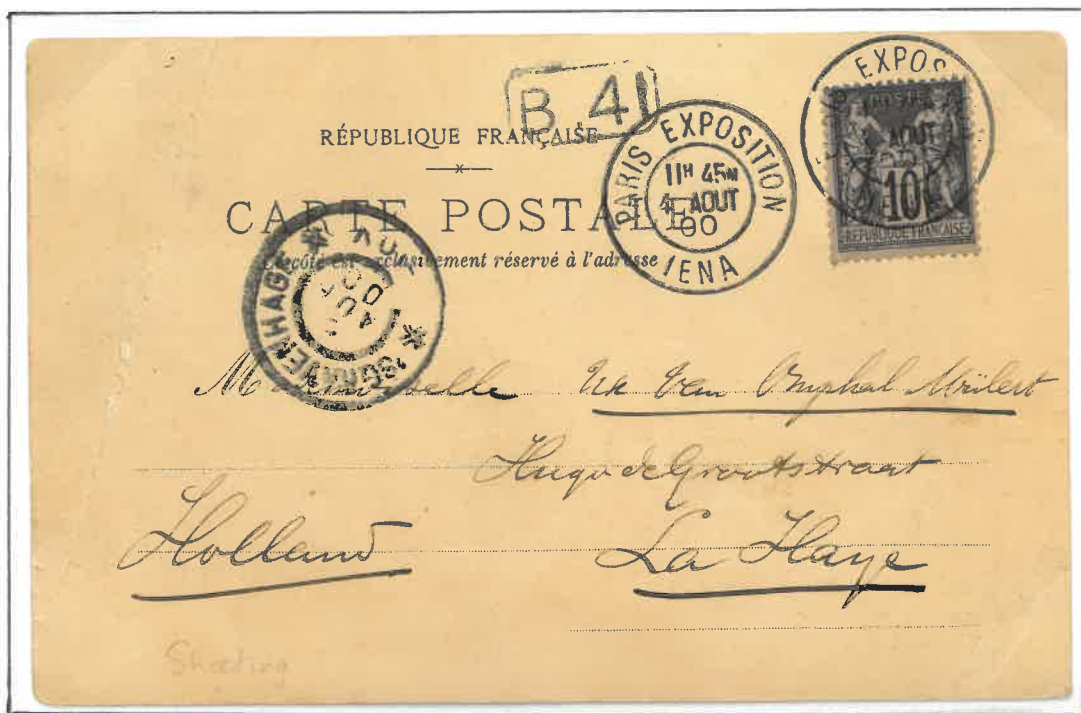 B. 41
RÉPUBLIQUE FRANÇAISE
CARTE POSTALE
Ce côté est exclusivement réservé à l'adresse
PARIS EXPOSITION
11H 45M
4 AOUT
00
IENA
EXPOS
AOUT
10
REPUBLIQUE FRANÇAISE
'SGRAVENHAGE
AUG
00
Mademoiselle van
Hugo de Grootstraat
Holland
La Haye
Shooting